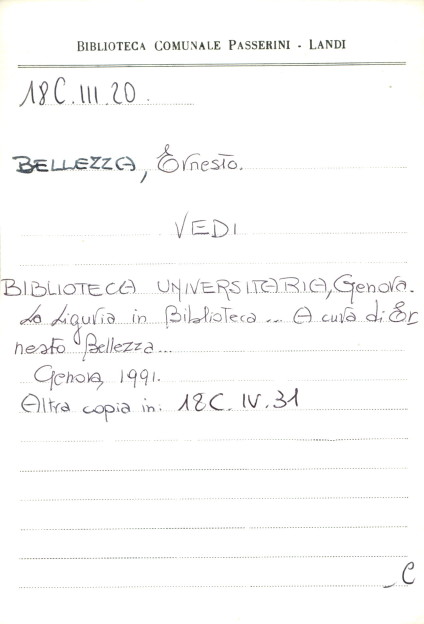 BIBLIOTECA COMUNALE PASSERINI - LANDI
18C.III.20.
BELLEZZA, Ernesto.
VEDI
BIBLIOTECA UNIVERSITARIA, Genova.
La Liguria in Biblioteca... A cura di Er
nesto Bellezza...
Genova, 1991.
Altra copia in: 18C.IV.31
C